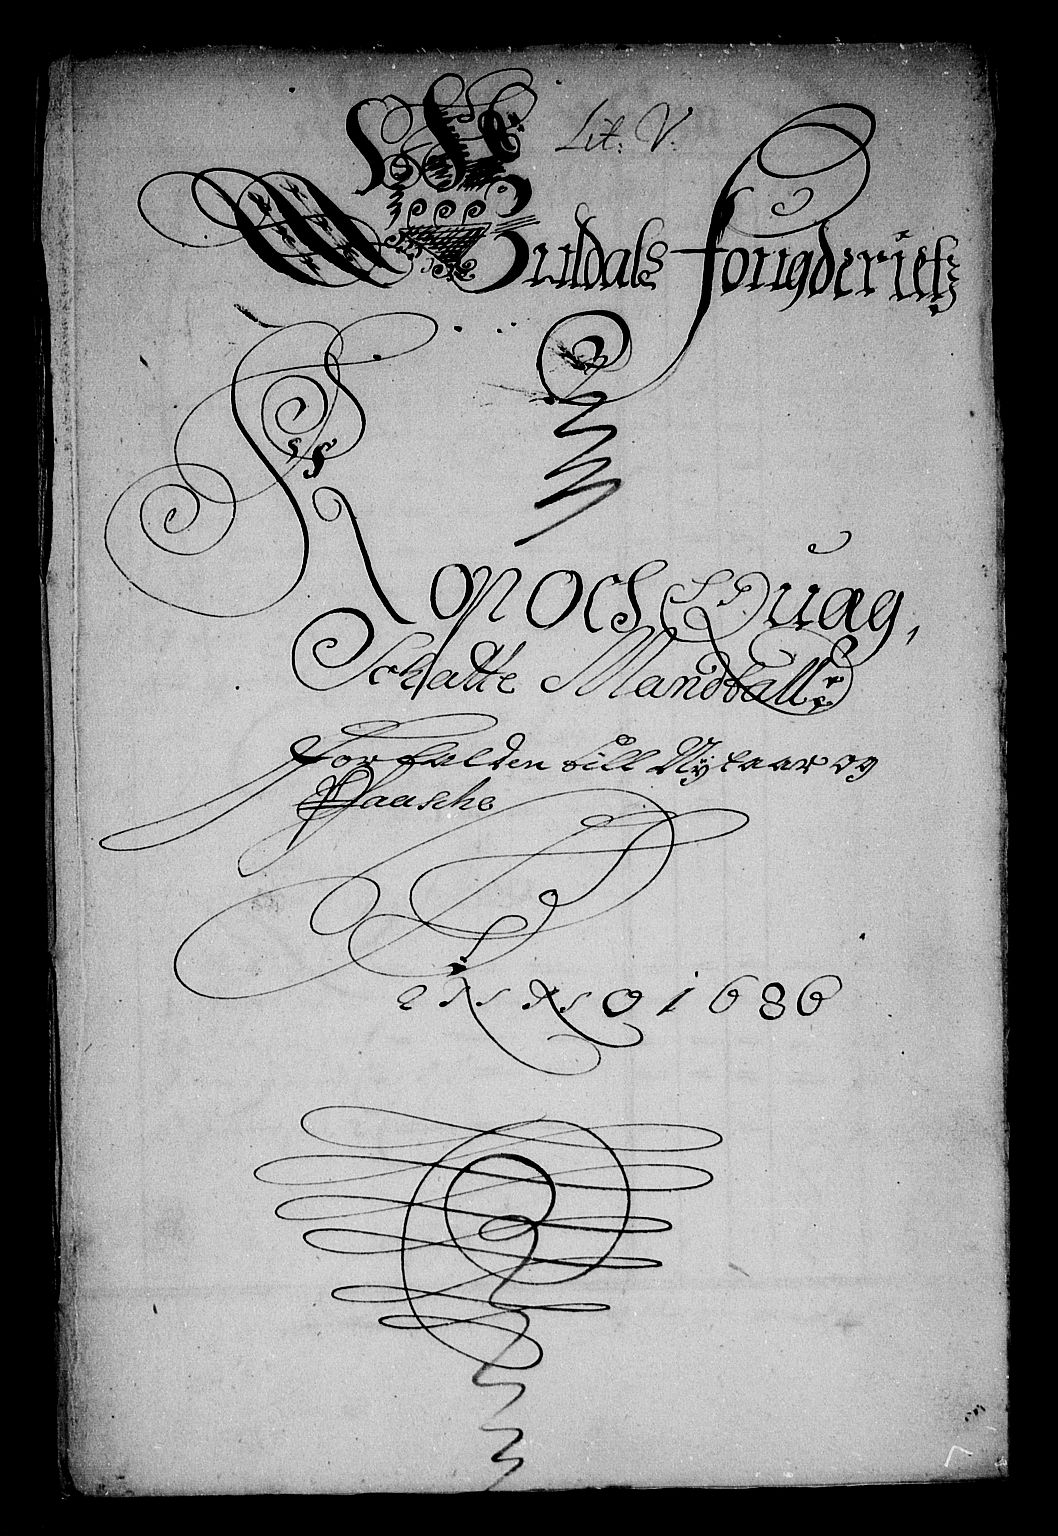 Lit. V.
Guldals fougderietz
Kop och Quæg,
Schatte Mandtall
Forfalden till Nÿtaar og
Paasche
Anno 1686